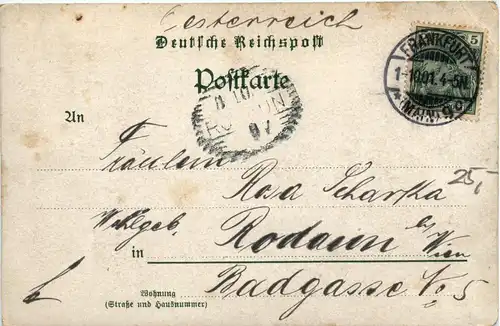 Oesterreich
Deutsche Reichspost
Postkarte
5
FRANKFURT
1-10.01. 4-5N
(MAIN)
An
Fräulein
Rosa Scharfka
25,-
Wohlgeb.
in Rodaun b/ Wien
Badgasse No 5
Wohnung
(Straße und Hausnummer)